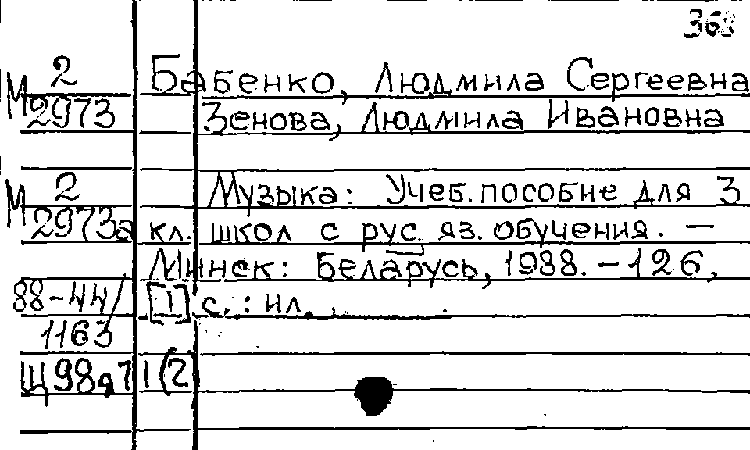 368
М 2/2973 Бабенко, Людмила Сергеевна
Зенова, Людмила Ивановна
М 2/2973а Музыка: Учеб. пособие для 3
кл. школ с рус. яз. обучения. —
Минск: Беларусь, 1988. – 126,
88-44/1163 [1] с.: ил.
Щ98я71(2)